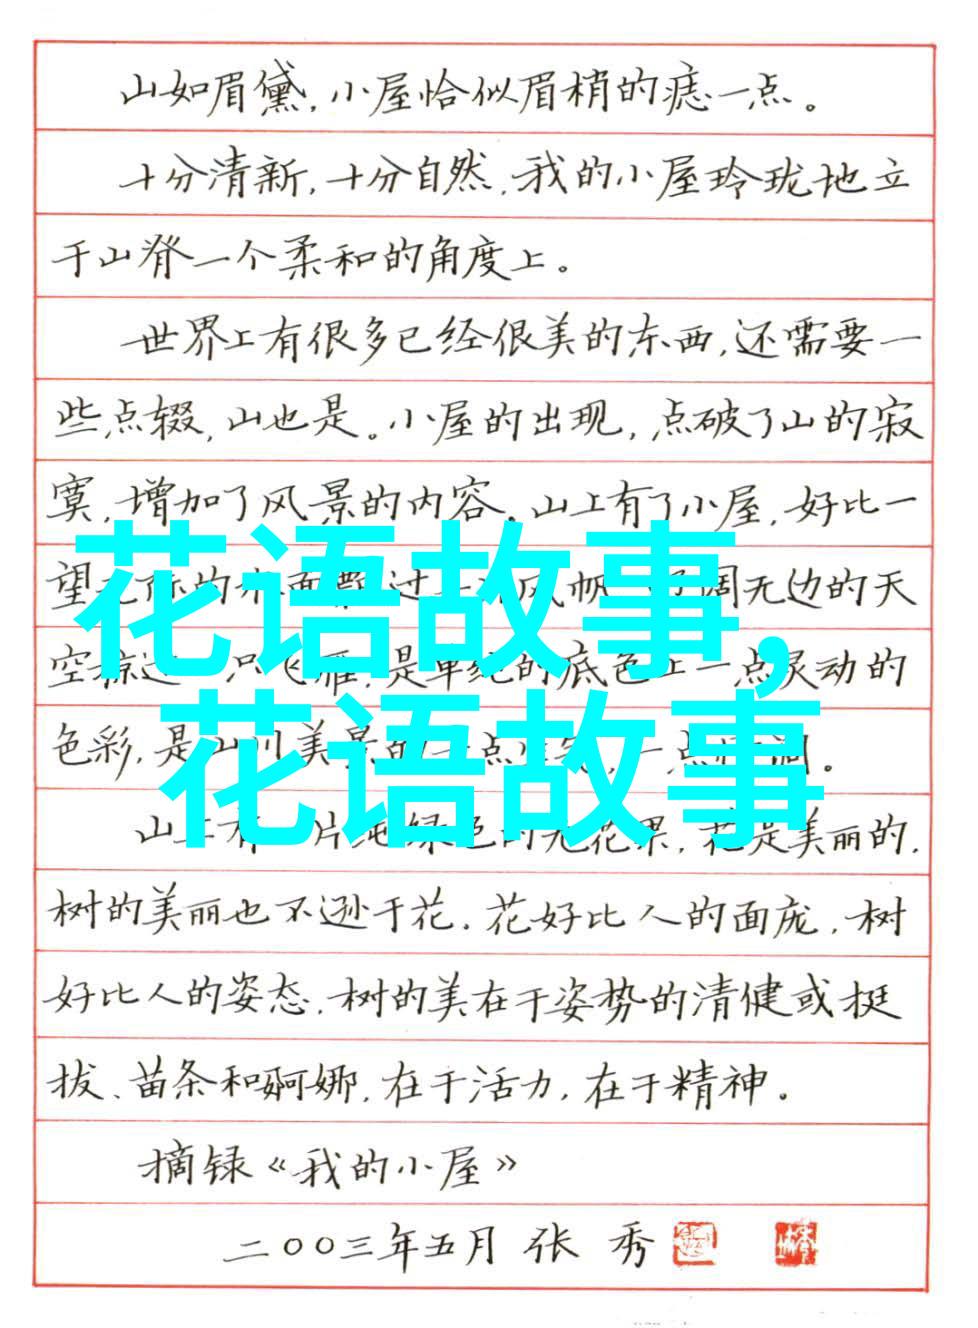 山如眉黛，小屋恰似眉梢的痣一点。
十分清新，十分自然，我的小屋玲珑地立
于山脊一个柔和的角度上。
世界上有很多已经很美的东西，还需要一
些点缀，山也是。小屋的出现，点破了山的寂
寞，增加了风景的内容。山上有了小屋，好比一
望无际的水面飘过一风帆，辽阔无边的天
空掠过一只飞雁，是单纯的底色上一点灵动的
色彩，是山川美景的一点，一点。
花语故事，
花语故事
山上有一片纯绿色的无花果，花是美丽的，
树的美丽也不逊于花。花好比人的面庞，树
好比人的姿态。树的美在于姿势的清健或挺
拔、苗条和婀娜，在于活力，在于精神。
摘录《我的小屋》
二〇〇三年五月 张秀